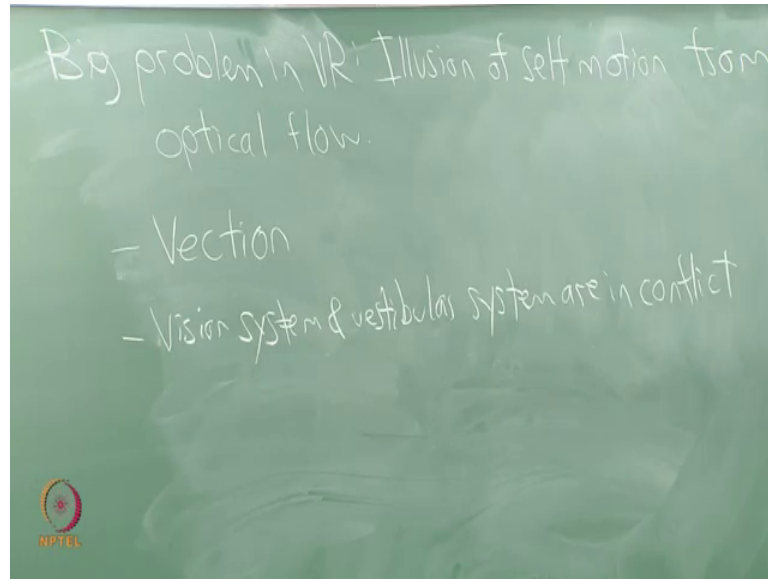 Big problem in VR: Illusion of self motion from
optical flow.
- Vection
- Vision system & vestibular system are in conflict
NPTEL